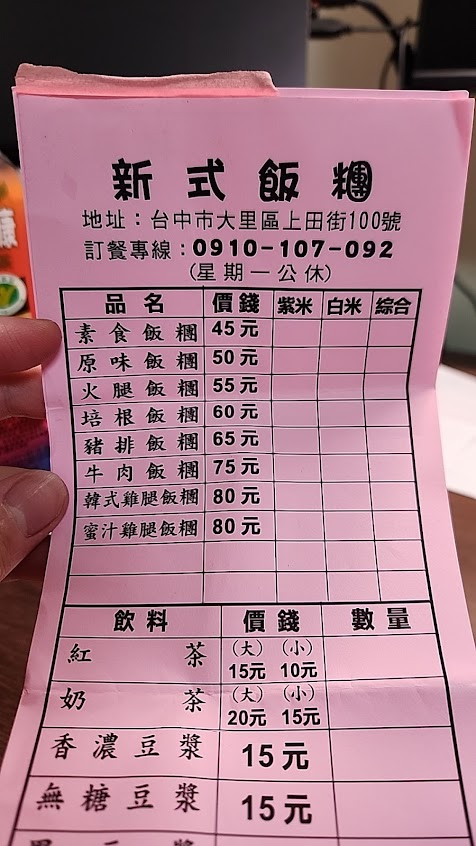 新式飯糰
地址：台中市大里區上田街100號
訂餐專線：0910-107-092
(星期一公休)
品名 價錢 紫米 白米 綜合
素食飯糰 45元
原味飯糰 50元
火腿飯糰 55元
培根飯糰 60元
豬排飯糰 65元
牛肉飯糰 75元
韓式雞腿飯糰 80元
蜜汁雞腿飯糰 80元
飲料 價錢 數量
紅茶 (大)15元 (小)10元
奶茶 (大)20元 (小)15元
香濃豆漿 15元
無糖豆漿 15元